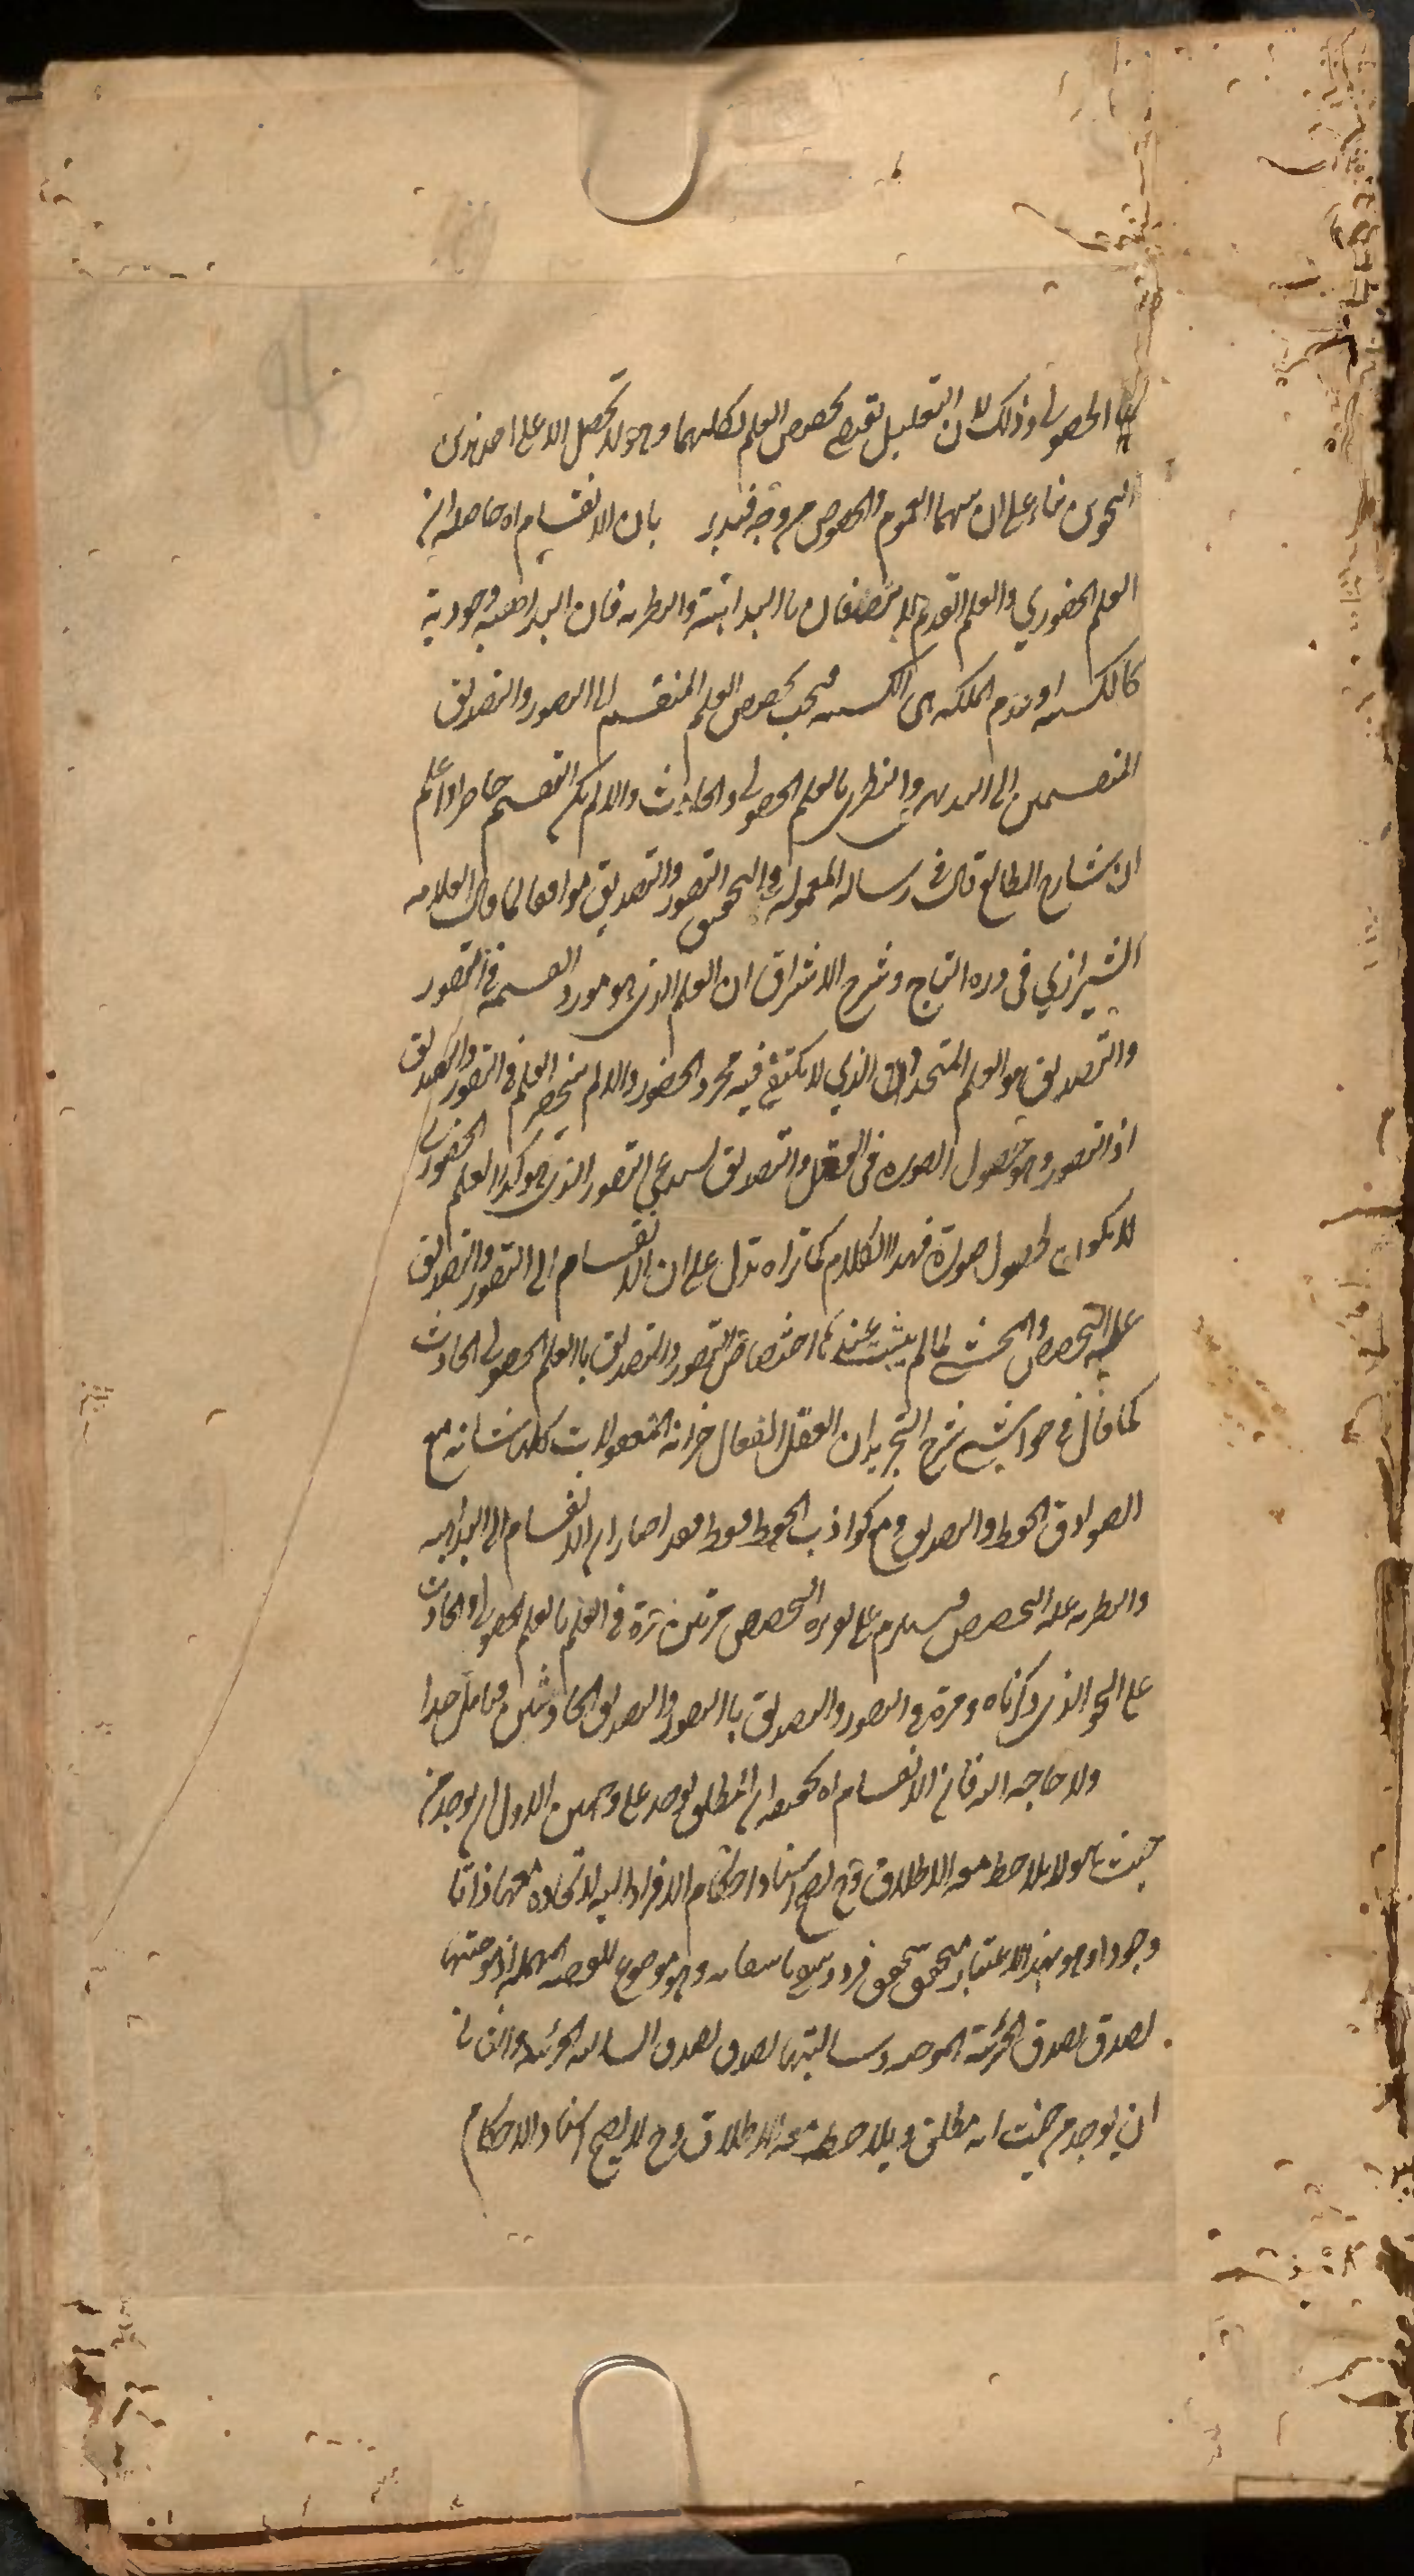 الحصولي وذلك لان التعليل يقتضي تخصيص العلم بكليهما وهو لا يحصل الا على احد هذين
النحوين بناء على ان بينهما العموم والخصوص من وجه فتدبر بان الانقسام اه حاصله ان
العلم الحضوري والعلم القديم لا يتصفان باالبداهة والنظرية فان البداهة وجودية
كالكسبية او عدم الملكة هي الكسبية فيجب تخصيص العلم المنقسم الى التصور والتصديق
المنقسمين الى البديهي والنظري بالعلم الحصولي والحادث والا لم يكن التقسيم حاصرا واعلم
ان شارح المطالع قال في رسالة المعمولة في تحقيق التصور والتصديق موافقا لما قال العلامة
الشيرازي في درة التاج وشرح الاشراق ان العلم الذي هو مورد القسمة في التصور
والتصديق هو العلم المتجدد الذي لا يكتفي فيه مجرد الحضور والا لم ينحصر العلم في التصور والتصديق
اذ التصور وهو حصول الصورة في العقل والتصديق يستدعي التصور الذي هو كذا العلم الحضوري
لا يكون بحصول صورة فهذا الكلام كما تراه تدل على ان الانقسام الى التصور والتصديق
علة التخصيص والمحشي لما لم يثبت عنده اختصاص التصور والتصديق باالعلم الحصولي الحادث
كما قال في حواشي شرح التجريد ان العقل الفعال خزانة المعقولات كلها شانه مع
الصوادق الحفظ والتصديق ومع كواذب الحفظ فقط فقد اختار ان الانقسام الى البداهة
والنظرية علة التخصيص فيلزم على هذه التخصيص مرتين مرة في العلم بالعلم الحصولي والحادث
على النحو الذي ذكرناه ومرة في التصور والتصديق باالتصور والتصديق الحادثين فتامل جدا
ولا حاجة اليه فان الانقسام اه تحقيقه ان المطلق يوخذ على وجهين الاول ان يوخذ من
حيث هو ولا يلاحظ معه الاطلاق وح يصح اسناد احكام الافراد اليه لاتحاده معها ذاتا
وجودا وهو بهذا الاعتبار يتحقق بتحقق فرد وينتفي بانتفائه وهو موضوع للقضية المهملة اذ موجبتها
تصدق بصدق الجزئية الموجبة وسالبتها تصدق بصدق السالبة الجزئية والثاني
ان يوخذ من حيث انه مطلق ويلاحظ معه الاطلاق وح لا يصح اسناد الاحكام